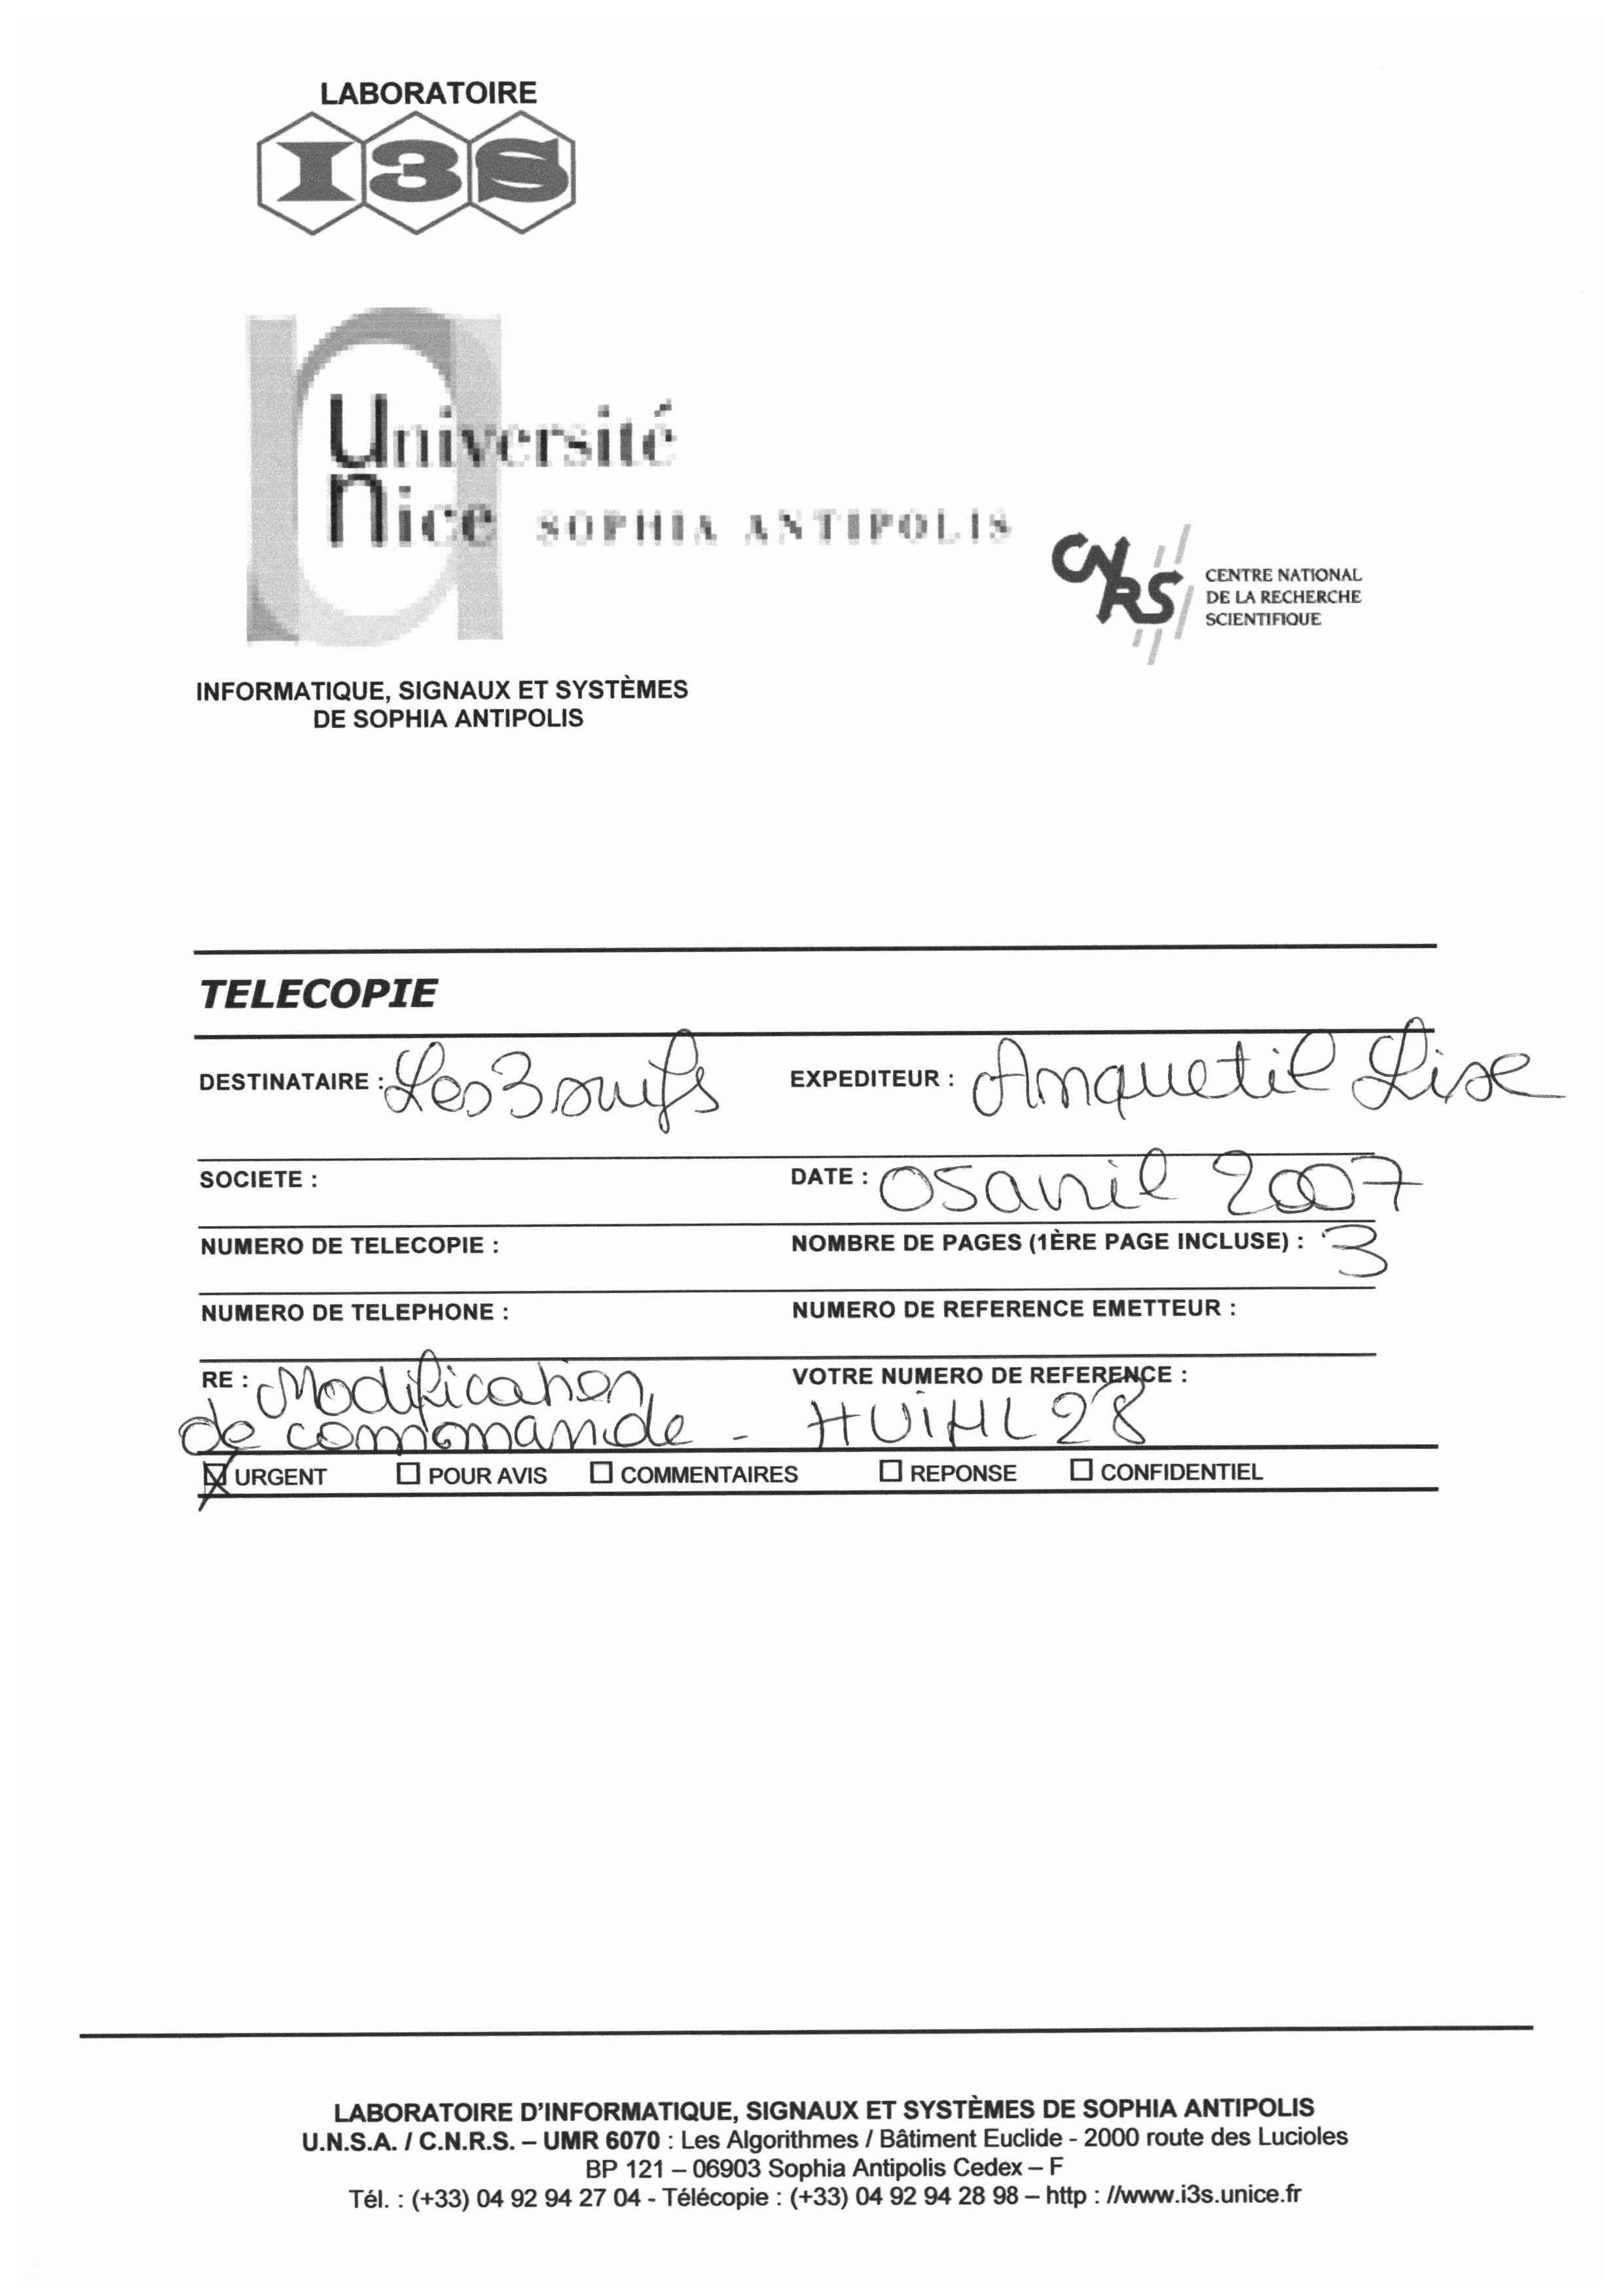 LABORATOIRE
I3S
Université
Nice SOPHIA ANTIPOLIS
CNRS
CENTRE NATIONAL
DE LA RECHERCHE
SCIENTIFIQUE
INFORMATIQUE, SIGNAUX ET SYSTÈMES
DE SOPHIA ANTIPOLIS
TELECOPIE
DESTINATAIRE : Les 3 EXPEDITEUR : Anquetil Lise
SOCIETE : DATE : 05 avril 2007
NUMERO DE TELECOPIE : NOMBRE DE PAGES (1ÈRE PAGE INCLUSE) : 3
NUMERO DE TELEPHONE : NUMERO DE REFERENCE EMETTEUR :
RE : Modification VOTRE NUMERO DE REFERENCE :
de commande - HUiHL28
URGENT POUR AVIS COMMENTAIRES REPONSE CONFIDENTIEL
LABORATOIRE D'INFORMATIQUE, SIGNAUX ET SYSTÈMES DE SOPHIA ANTIPOLIS
U.N.S.A. / C.N.R.S. – UMR 6070 : Les Algorithmes / Bâtiment Euclide - 2000 route des Lucioles
BP 121 – 06903 Sophia Antipolis Cedex – F
Tél. : (+33) 04 92 94 27 04 - Télécopie : (+33) 04 92 94 28 98 – http : //www.i3s.unice.fr